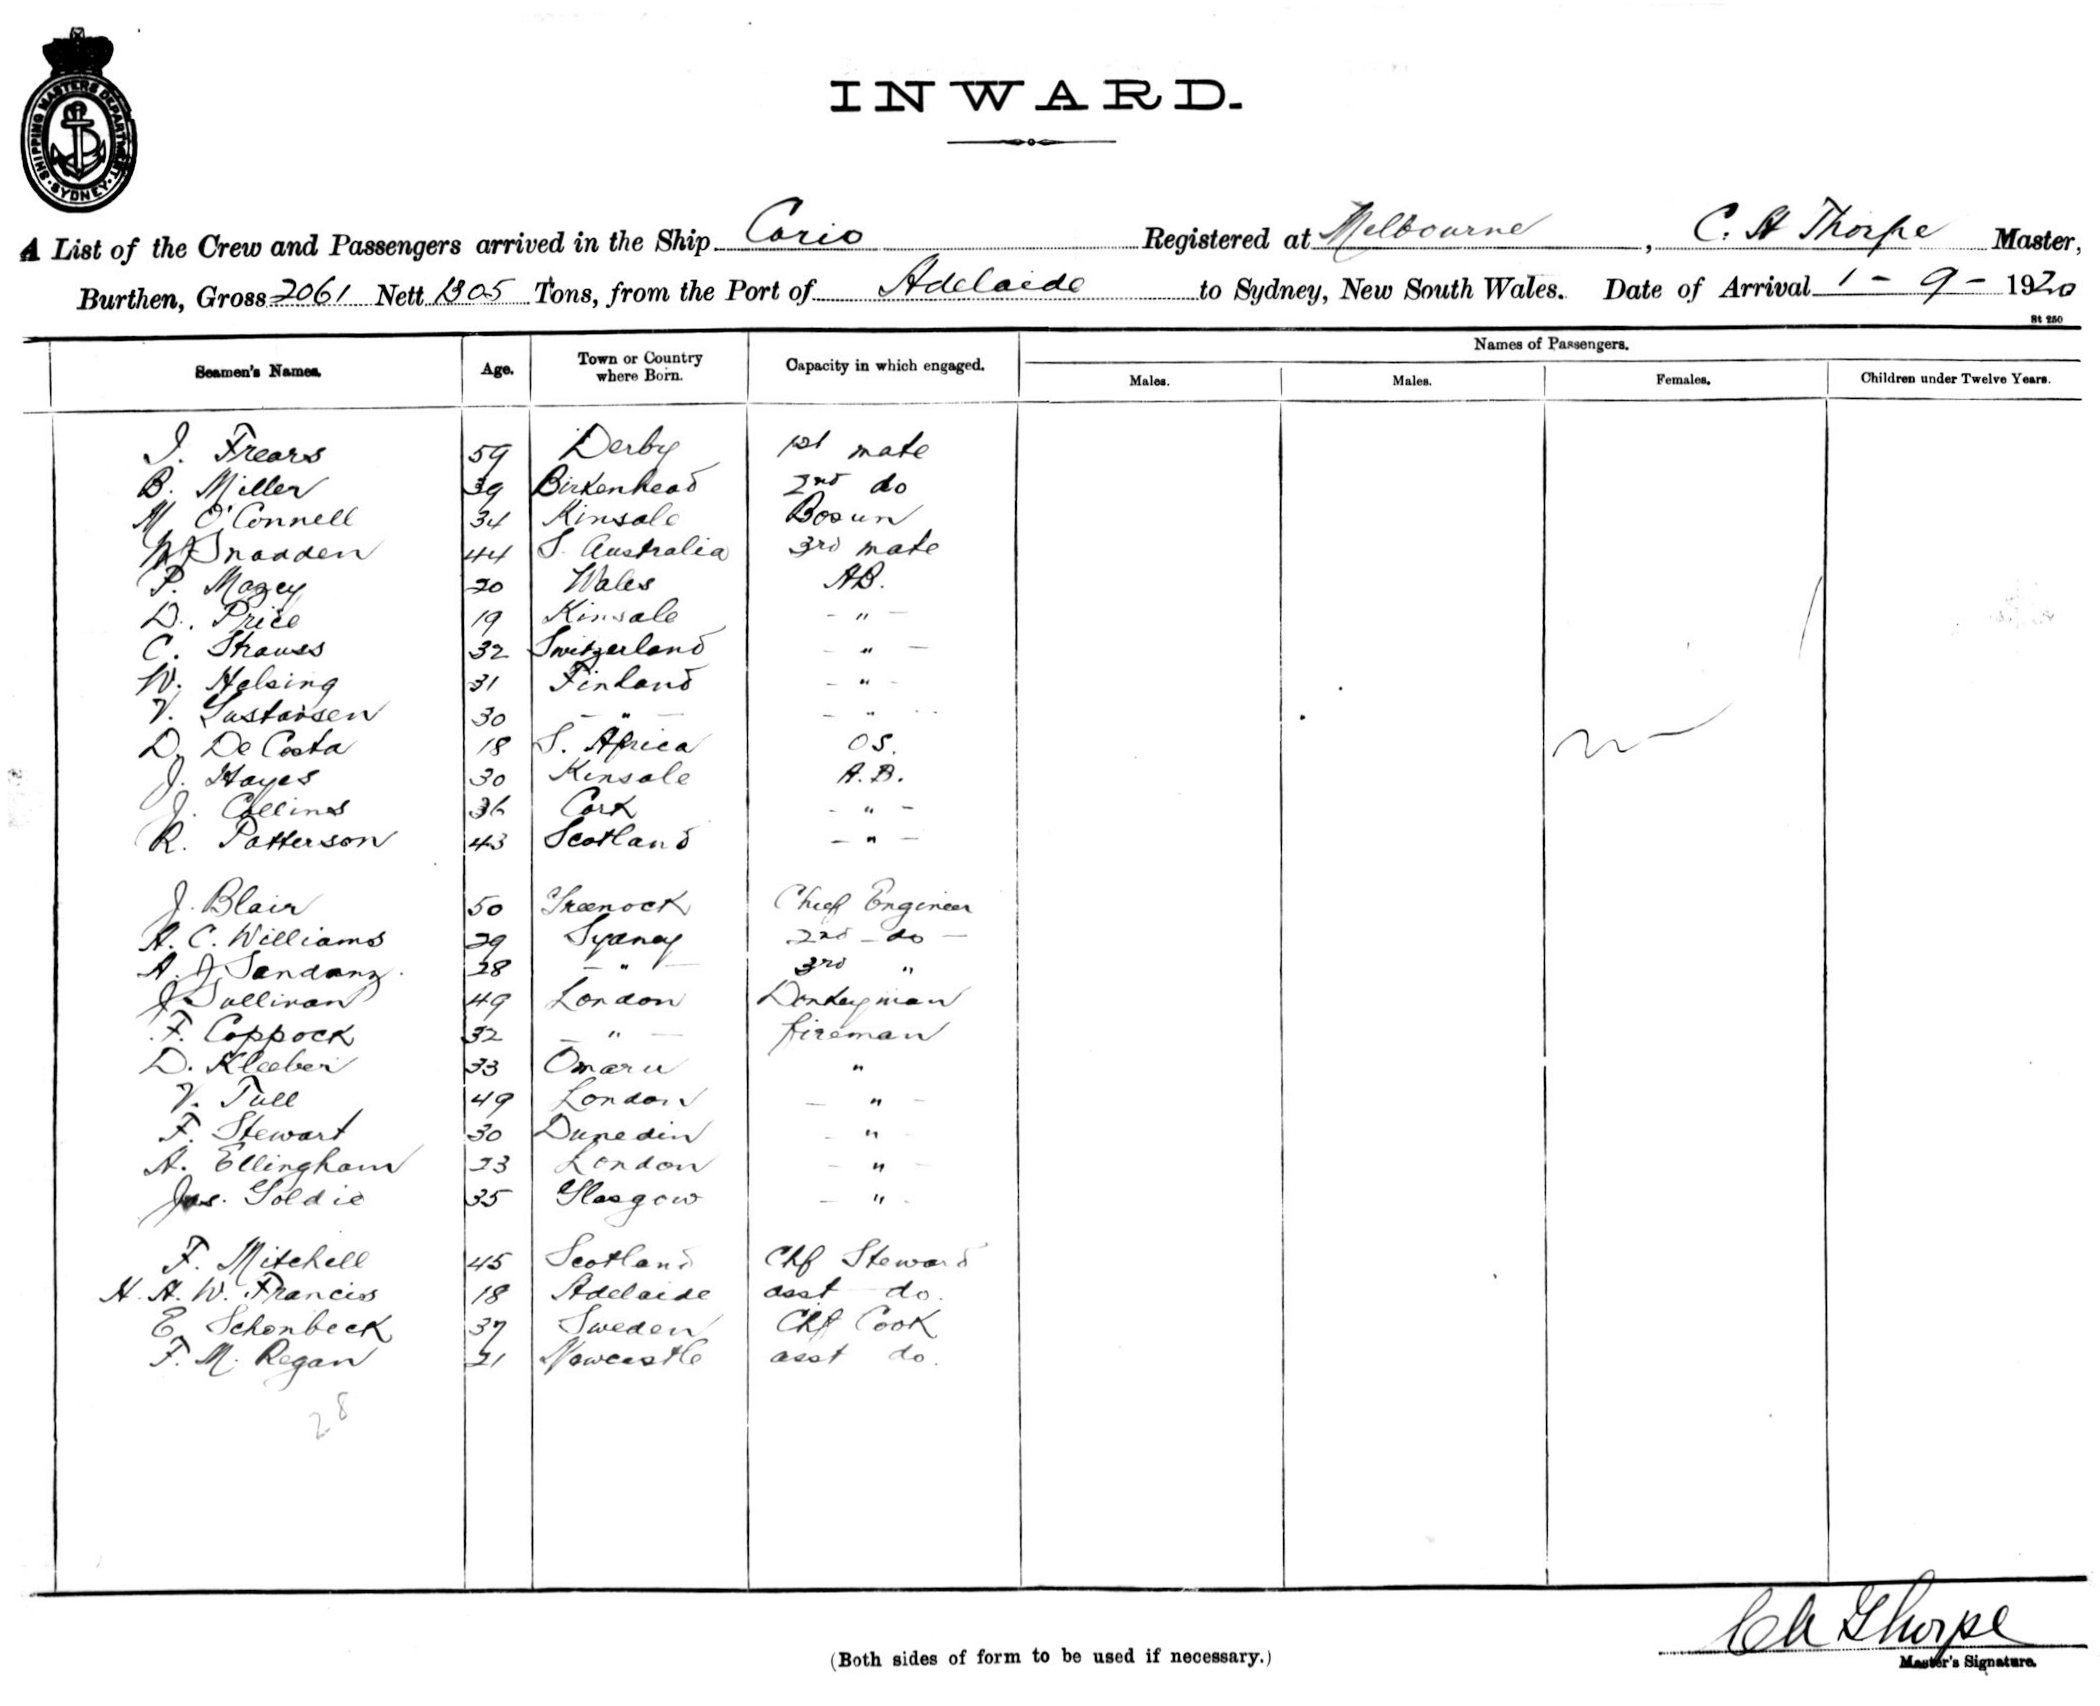 SHIPPING MASTERS DEPARTMENT · SYDNEY ·
INWARD.
A List of the Crew and Passengers arrived in the Ship Corio Registered at Melbourne, C. H Thorpe Master,
Burthen, Gross 2061 Nett 1305 Tons, from the Port of Adelaide to Sydney, New South Wales. Date of Arrival 1 - 9 - 1920
St 250
Seamen's Names. Age. Town or Country where Born. Capacity in which engaged. Names of Passengers.
Males. Males. Females. Children under Twelve Years.
J. Frears 59 Derby 1st mate
B. Miller 39 Birkenhead 2nd do
M O'Connell 34 Kinsale Bosun
Snadden 44 S. Australia 3rd mate
P. Mazey 20 Wales AB.
D. Price 19 Kinsale - " -
C. Strauss 32 Switzerland - " -
W. Helsing 31 Finland - " -
V. Gustavsen 30 - " - - " -
D. De Costa 18 S. Africa OS.
J. Hayes 30 Kinsale A.B.
J. Collins 36 Cork - " -
R. Patterson 43 Scotland - " -
J. Blair 50 Greenock Chief Engineer
A. C. Williams 29 Sydney 2nd - do -
A. J 28 - " - 3rd "
J Sullivan 49 London Donkeyman
F. Coppock 32 - " - fireman
D. Kleeber 33 Omaru "
V. Tull 49 London - " -
F. Stewart 30 Dunedin - "
A. Ellingham 23 London - " -
Jas. Goldie 35 Glasgow - " -
F. Mitchell 45 Scotland Chf Steward
H. A. W. Francis 18 Adelaide asst do.
E Schonbeck 37 Sweden Chf Cook
F. M. Regan 21 Newcastle asst do.
28
CH Thorpe
(Both sides of form to be used if necessary.)
Master's Signature.